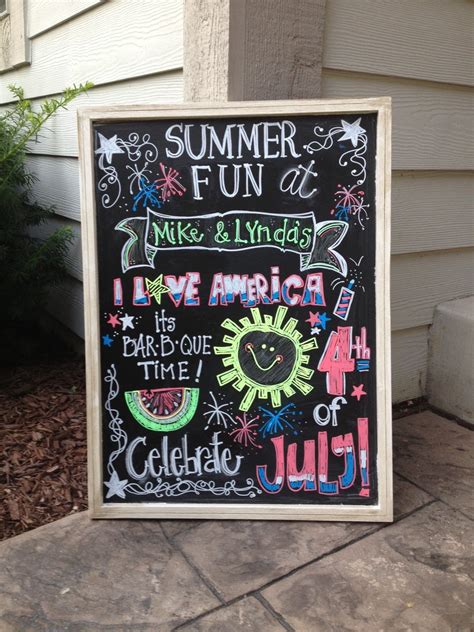 SUMMER
FUN at
Mike & Lynda's
I LOVE AMERICA
its
BAR-B-QUE
TIME!
4th
of
Celebrate
JULY!